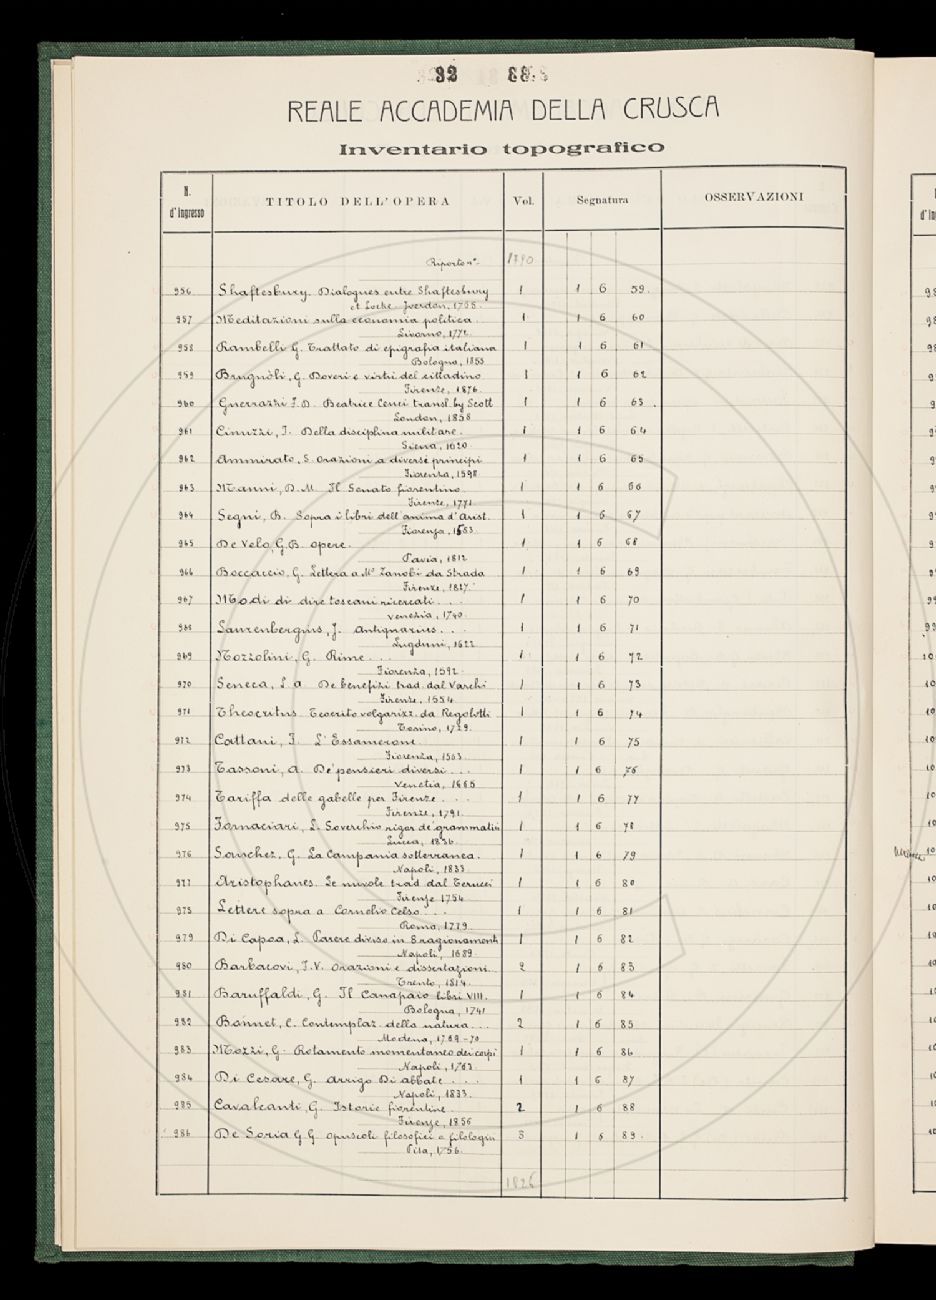 32
REALE ACCADEMIA DELLA CRUSCA
Inventario topografico
N. d'Ingresso TITOLO DELL'OPERA Vol. Segnatura OSSERVAZIONI
Riporto nº 1790
956 Shaftesbury. Dialogues entre Shaftesbury 1 1 6 59.
et Locke. Yverdon,
957 Meditazioni sulla economia politica. 1 1 6 60
Livorno, 1772
958 Rambelli G. Trattato di epigrafia italiana 1 1 6 61
Bologna, 1853
959 Brugnòli, G. Doveri e virtù del cittadino 1 1 6 62
Firenze, 1876.
960 Guerrazzi F.D. Beatrice Cenci transl. by Scott 1 1 6 63.
London, 1858
961 Cinuzzi, I. Della disciplina militare. 1 1 6 64
Siena, 1620
962 Ammirato, S. Orazioni a diversi principi 1 1 6 65
Fiorenza, 1598
963 Manni, D.M. Il Senato fiorentino. 1 1 6 66
Firenze, 1771
964 Segni, B. Sopra i libri dell'anima d'Arist. 1 1 6 67
Fiorenza, 1583
965 De Velo, G.B. opere. 1 1 6 68
Pavia, 1812
966 Boccaccio, G. Lettera a Mº Zanobi da Strada 1 1 6 69
Firenze, 1827.
967 Modi di dire toscani ricercati . . . 1 1 6 70
Venezia, 1740.
968 Laurenbergius, J. Antiquarius. . . . 1 1 6 71
Lugduni, 1622
969 Mozzolini, G. Rime. . . 1 1 6 72
Fiorenza, 1592.
970 Seneca, L. A. De benefizi trad. dal Varchi 1 1 6 73
Firenze, 1554
971 Theocritus. Teocrito volgarizz. da Regolotti 1 1 6 74
Torino, 1729.
972 Cattani, F. L'Essamerone. 1 1 6 75
Fiorenza, 1563
973 Tassoni, A. De' pensieri diversi . . . 1 1 6 76
Venetia, 1665
974 Tariffa delle gabelle per Firenze . . . 1 1 6 77
Firenze, 1791.
975 Fornaciari, L. Soverchio rigor de' grammatici 1 1 6 78
Lucca, 1836.
976 Sanchez, G. La Campania sotterranea. 1 1 6 79
Napoli, 1833
977 Aristophanes. Le nuvole trad. dal Terucci 1 1 6 80
Firenze 1754
978 Lettere sopra a Cornelio Celso . . . 1 1 6 81
Roma, 1779.
979 Di Capoa, L. Parere diviso in 8 ragionamenti 1 1 6 82
Napoli, 1689.
980 Barbacovi, F.V. Orazioni e dissertazioni. 2 1 6 83
Trento, 1814.
981 Baruffaldi, G. Il Canapaio libri VIII. 1 1 6 84
Bologna, 1741
982 Bonnet, C. Contemplaz. della natura . . . 2 1 6 85
Modena, 1769-70
983 Mozzi, G. Rotamento momentaneo dei corpi 1 1 6 86
Napoli,
984 Di Cesare, G. Arrigo Di abbate . . . . 1 1 6 87
Napoli, 1833.
985 Cavalcanti, G. Istorie fiorentine. 2 1 6 88
Firenze, 1838
986 De Soria G.G. opuscoli filosofici e filologici 3 1 6 89.
Pisa, 1756.
1826